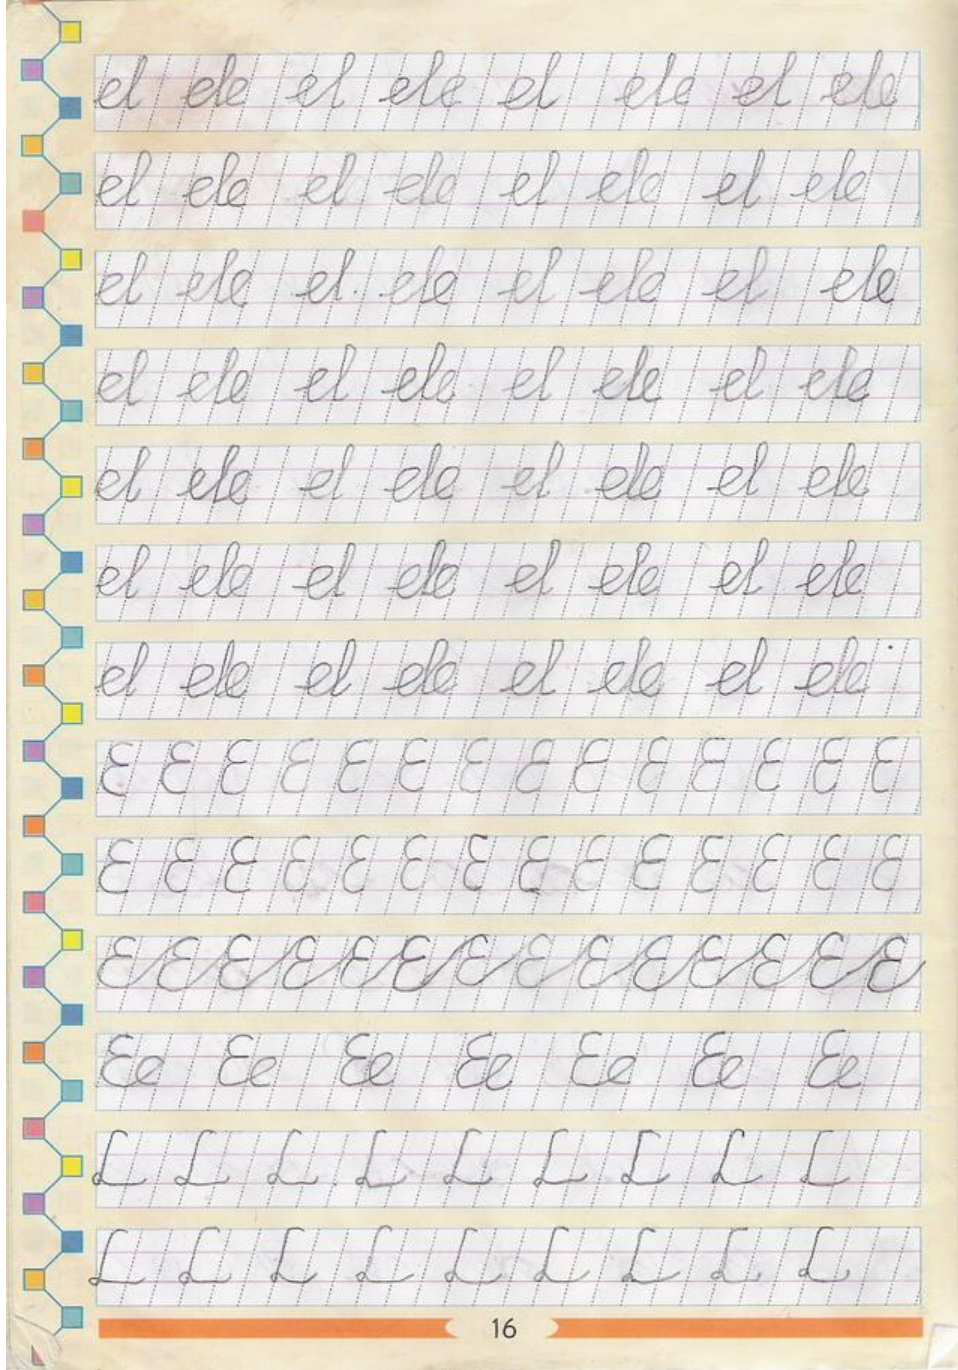 el ele el ele el ele el ele
el ele el ele el ele el ele
el ele el. ele el ele el ele
el ele el ele el ele el ele
el ele el ele el ele el ele
el ele el ele el ele el ele
el ele el ele el ele el ele
E E E E E E E E E E E E E E
E E E E E E E E E E E E E E
E E E E E E E E E E E E E E
Ee Ee Ee Ee Ee Ee Ee
L L L L L L L L L
L L L L L L L L L
16